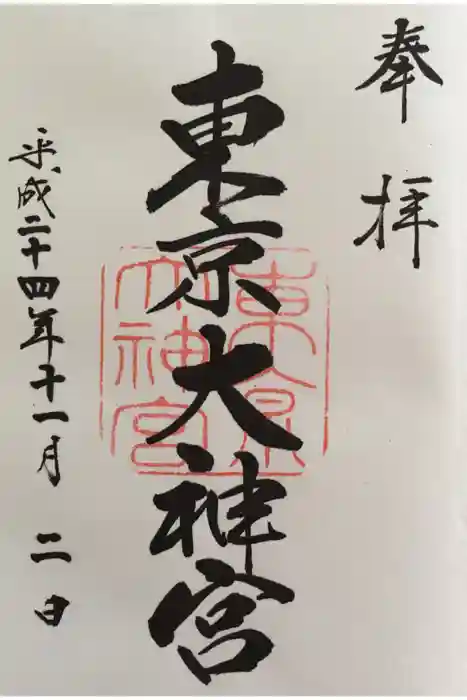 奉拝
東京大神宮
東京大神宮
平成二十四年十一月二日